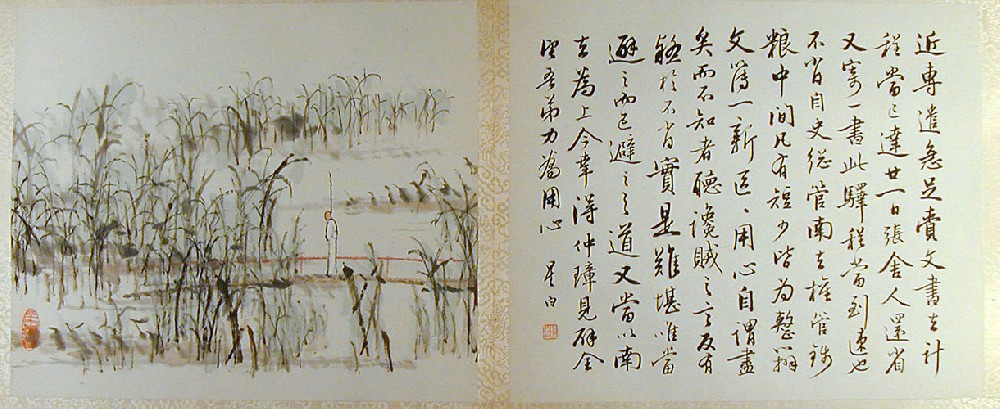 近專遣急足賫文書去計
程當已達廿一日張舍人還省
又寄一書此驛程當到遲也
不肖自史總管南去權管錢
粮中間凡有短少皆為整辦
文簿一新區、用心自謂盡
矣而不知者聽讒賊之言反有
疑於不肖實是難堪唯當
避之而已避之之道又當以南
去為上今幸得仲璋見辟全
望吾弟力為用心